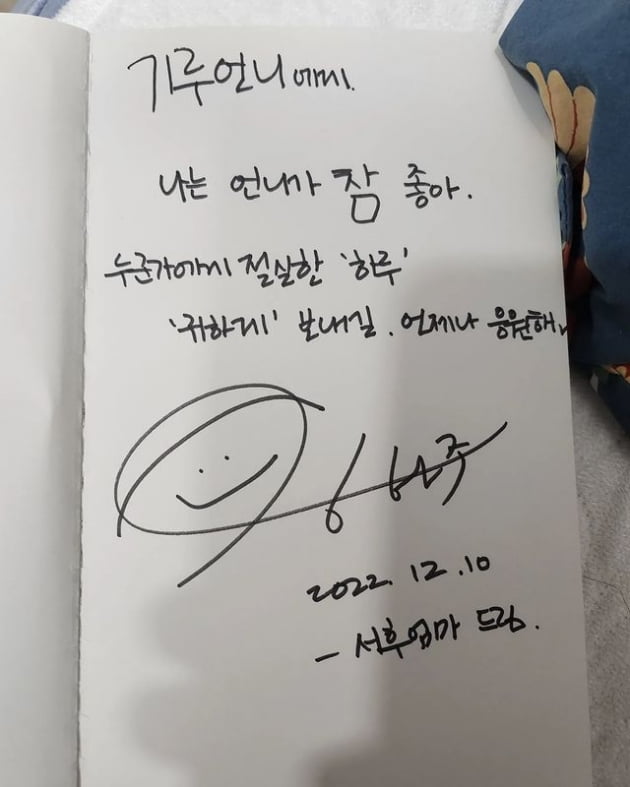 기루언니에게.
나는 언니가 참 좋아.
누군가에게 절실한 '하루'
'귀하게' 보내길. 언제나 응원해.
2022. 12. 10
- 서후엄마 드림.